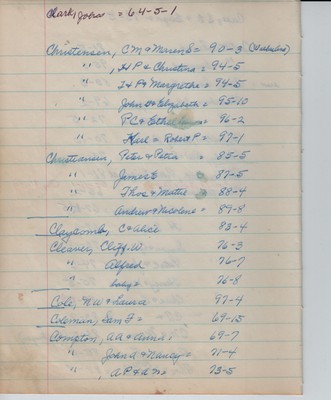 Clark, Joena = 64-5-1
Christensen, C M & Maren S = 90-3
" , H P & Christina = 94-5
" J & P & Margrethe = 94-5
" John & Elizabeth = 95-10
" P C & Ethel = 96-2
" Karl = Robert P = 97-1
Christiansen, Peter & Petra = 85-5
" James E 87-5
" Thos & Mattie 88-4
" Andrew & Nicolene = 89-8
Claycomb, C & Alice 83-4
Cleaver, Cliff. W 76-3
" Alfred 76-7
" baby = 76-8
Cole, N W & Laura 97-4
Coleman, Sam F = 69-15
Compton, A A & Anna 69-7
" John A & Nancy = 71-4
" , A P & A M = 73-5